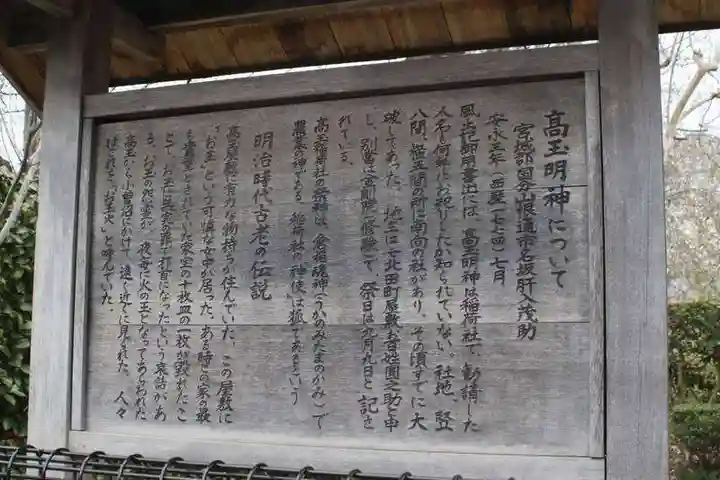 高玉明神について
宮城郡国分山根通市名坂肝入茂助
安永三年(西暦一七七四)七月
風土記御用書出には、高玉明神は稲荷社で、勧請した
人名も何年にお祀りしたか知られていない。社地、竪
八間、横五間の所に南向の社があり、その頃すでに大
破してあった。地主は七北田町屋敷百姓圓之助と申
し、別当は宮町(修験)で、祭日は九月九日と記さ
れている。
高玉稲荷社の祭神は、倉稲魂神(うかのみたまのかみ)で
農業神である。稲荷社の神使は狐であるという。
明治時代古老の伝説
高玉屋敷に有力な物持ちが住んでいた。この屋敷に
"お玉"という可憐な女中が居った。ある時この家の最
も貴重とされていた家宝の十枚皿の一枚が毀れたこ
とで、お玉は無実の罪で打首になったという哀話があ
る。お玉の怨霊が、夜毎に火の玉となってあらわれた
高玉から小曽沼にかけて、遠く近くに見られた。人々
はこれを「お玉火」と呼んでいた。